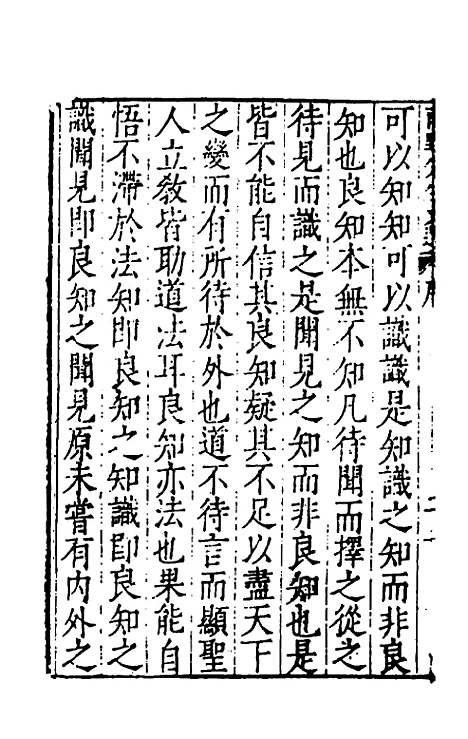 可以知知可以識識是知識之知而非良
知也良知本無不知凡待聞而擇之從之
待見而識之是聞見之知而非良知也是
皆不能自信其良知疑其不足以盡天下
之變而有所待於外也道不待言而顯聖
人立教皆助道法耳良知亦法也果能自
悟不滯於法知即良知之知識即良知之
識聞見即良知之聞見原未嘗有內外之